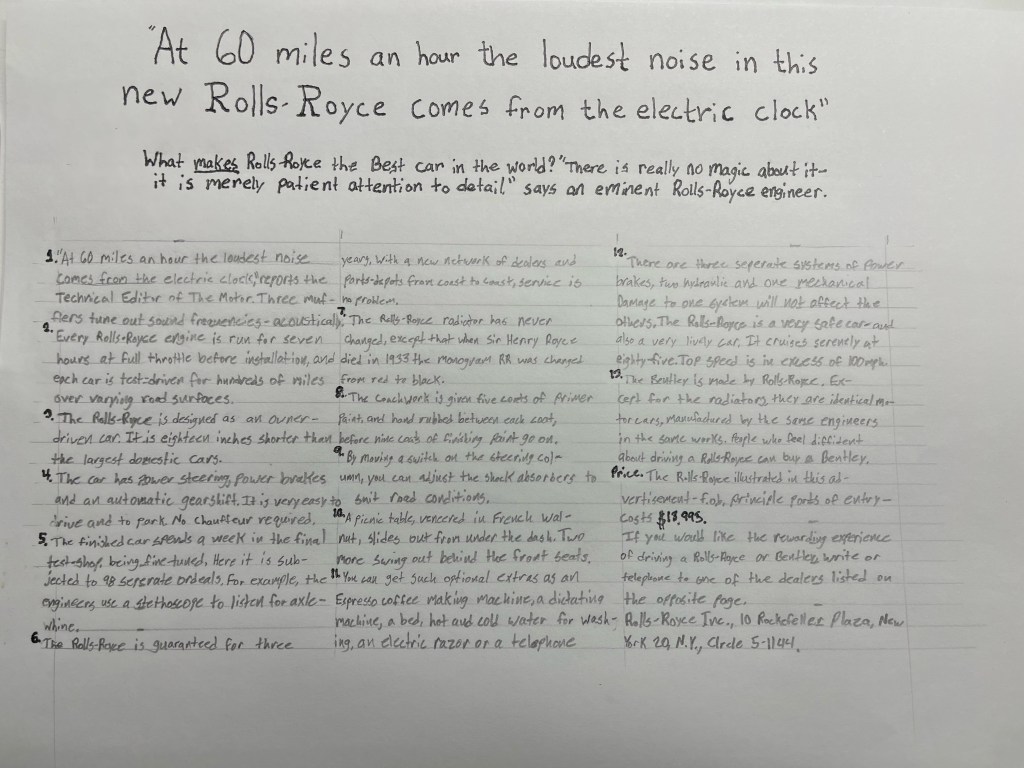 "At 60 miles an hour the loudest noise in this
new Rolls-Royce comes from the electric clock"
What makes Rolls-Royce the Best car in the world? "There is really no magic about it-
it is merely patient attention to detail" says an eminent Rolls-Royce engineer.
1. "At 60 miles an hour the loudest noise
comes from the electric clock," reports the
Technical Editor of The Motor. Three muf-
flers tune out sound frequencies - acoustically.
2. Every Rolls-Royce engine is run for seven
hours at full throttle before installation, and
each car is test-driven for hundreds of miles
over varying road surfaces.
3. The Rolls-Royce is designed as an owner-
driven car. It is eighteen inches shorter than
the largest domestic cars.
4. The car has power steering, power brakes
and an automatic gearshift. It is very easy to
drive and to park. No chauffeur required.
5. The finished car spends a week in the final
test-shop, being fine-tuned. Here it is sub-
jected to 98 seperate ordeals. For example, the
engineers use a stethoscope to listen for axle-
whine.
6. The Rolls-Royce is guaranteed for three
years. With a new network of dealers and
parts-depots from coast to coast, service is
no problem.
7. The Rolls-Royce radiator has never
changed, except that when Sir Henry Royce
died in 1933 the monogram RR was changed
from red to black.
8. The Coachwork is given five coats of primer
paint, and hand rubbed between each coat,
before nine coats of finishing paint go on.
9. By moving a switch on the steering col-
umn, you can adjust the shock absorbers to
suit road conditions.
10. A picnic table, veneered in French wal-
nut, slides out from under the dash. Two
more swing out behind the front seats.
11. You can get such optional extras as an
Espresso coffee making machine, a dictating
machine, a bed, hot and cold water for wash-
ing, an electric razor or a telephone
12. There are three seperate systems of power
brakes, two hydraulic and one mechanical
Damage to one system will not affect the
others. The Rolls-Royce is a very safe car-and
also a very lively car. It cruises serenely at
eighty-five. Top speed is in excess of 100mph.
13. The Bentley is made by Rolls-Royce. Ex-
cept for the radiators, they are identical mo-
tor cars, manufactured by the same engineers
in the same works. People who feel diffident
about driving a Rolls-Royce can buy a Bentley.
Price. The Rolls-Royce illustrated in this ad-
vertisement-f.o.b. principle ports of entry-
costs $13,995.
If you would like the rewarding experience
of driving a Rolls-Royce or Bentley, write or
telephone to one of the dealers listed on
the opposite page.
Rolls-Royce Inc., 10 Rockefeller Plaza, New
York 20, N.Y., Circle 5-1144.